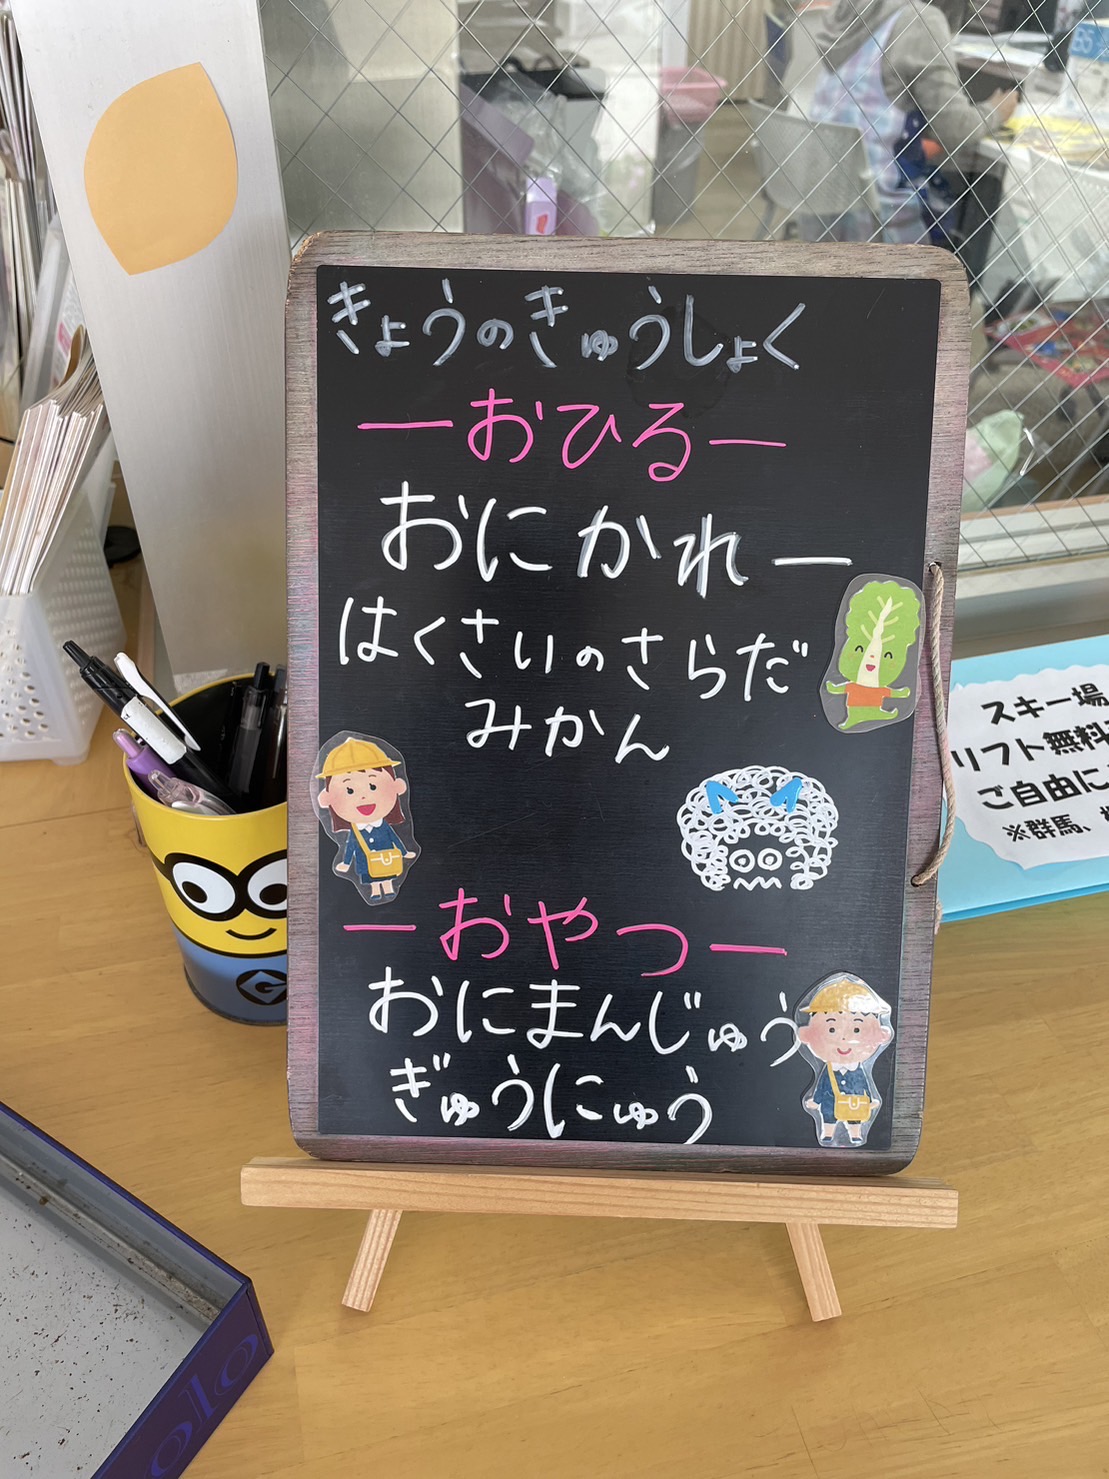 きょうのきゅうしょく
ーおひるー
おにかれー
はくさいのさらだ
みかん
ーおやつー
おにまんじゅう
ぎゅうにゅう
スキー場
リフト無料
ご自由に
※群馬、
B5
G
olo